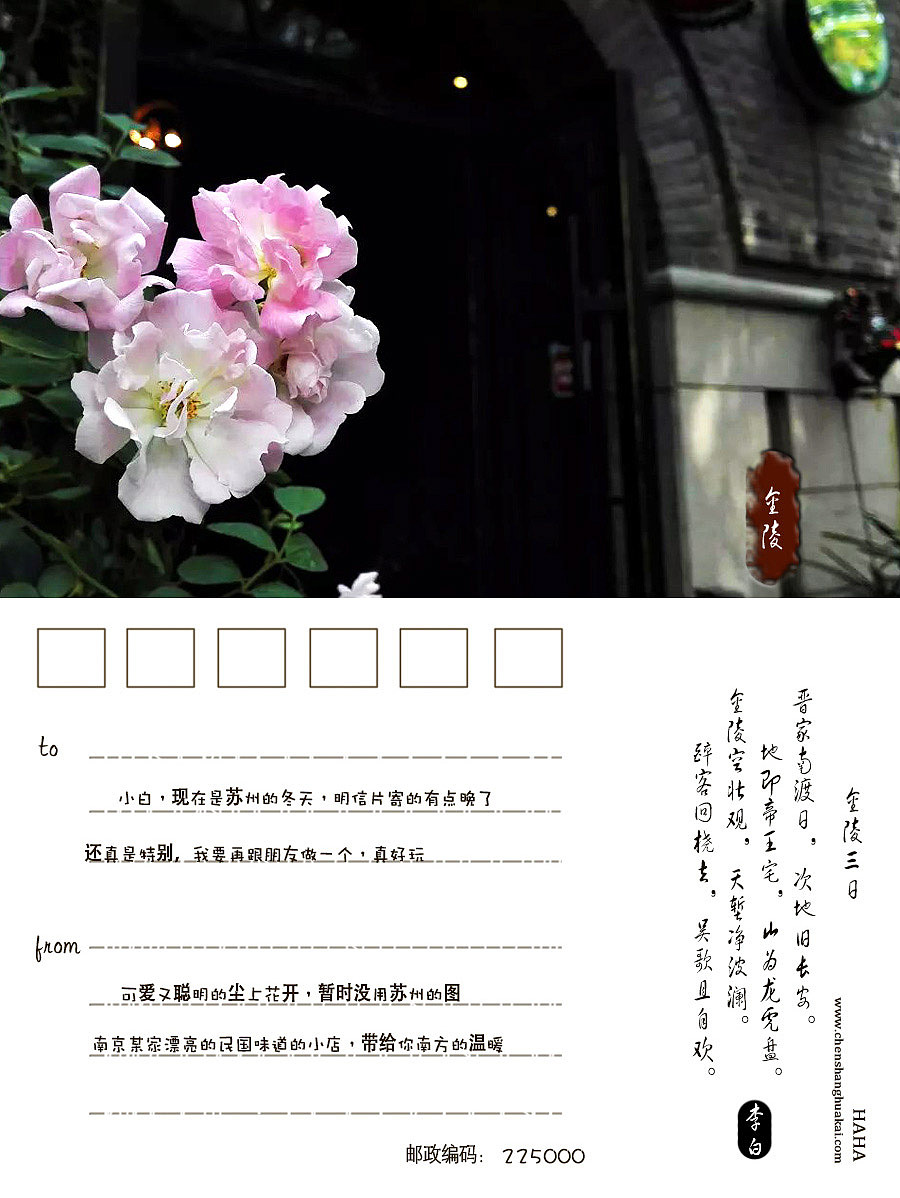 金陵
to
小白，现在是苏州的冬天，明信片寄的有点晚了
还真是特别，我要再跟朋友做一个，真好玩
from
可爱又聪明的尘上花开，暂时没用苏州的图
南京某家漂亮的民国味道的小店，带给你南方的温暖
邮政编码： 225000
金陵三日
晋家南渡日，次地旧长安。
地即帝王宅，山为龙虎盘。
金陵空壮观，天堑净波澜。
醉客回桡去，吴歌且自欢。
李白
HAHA
www.chenshanghuakai.com